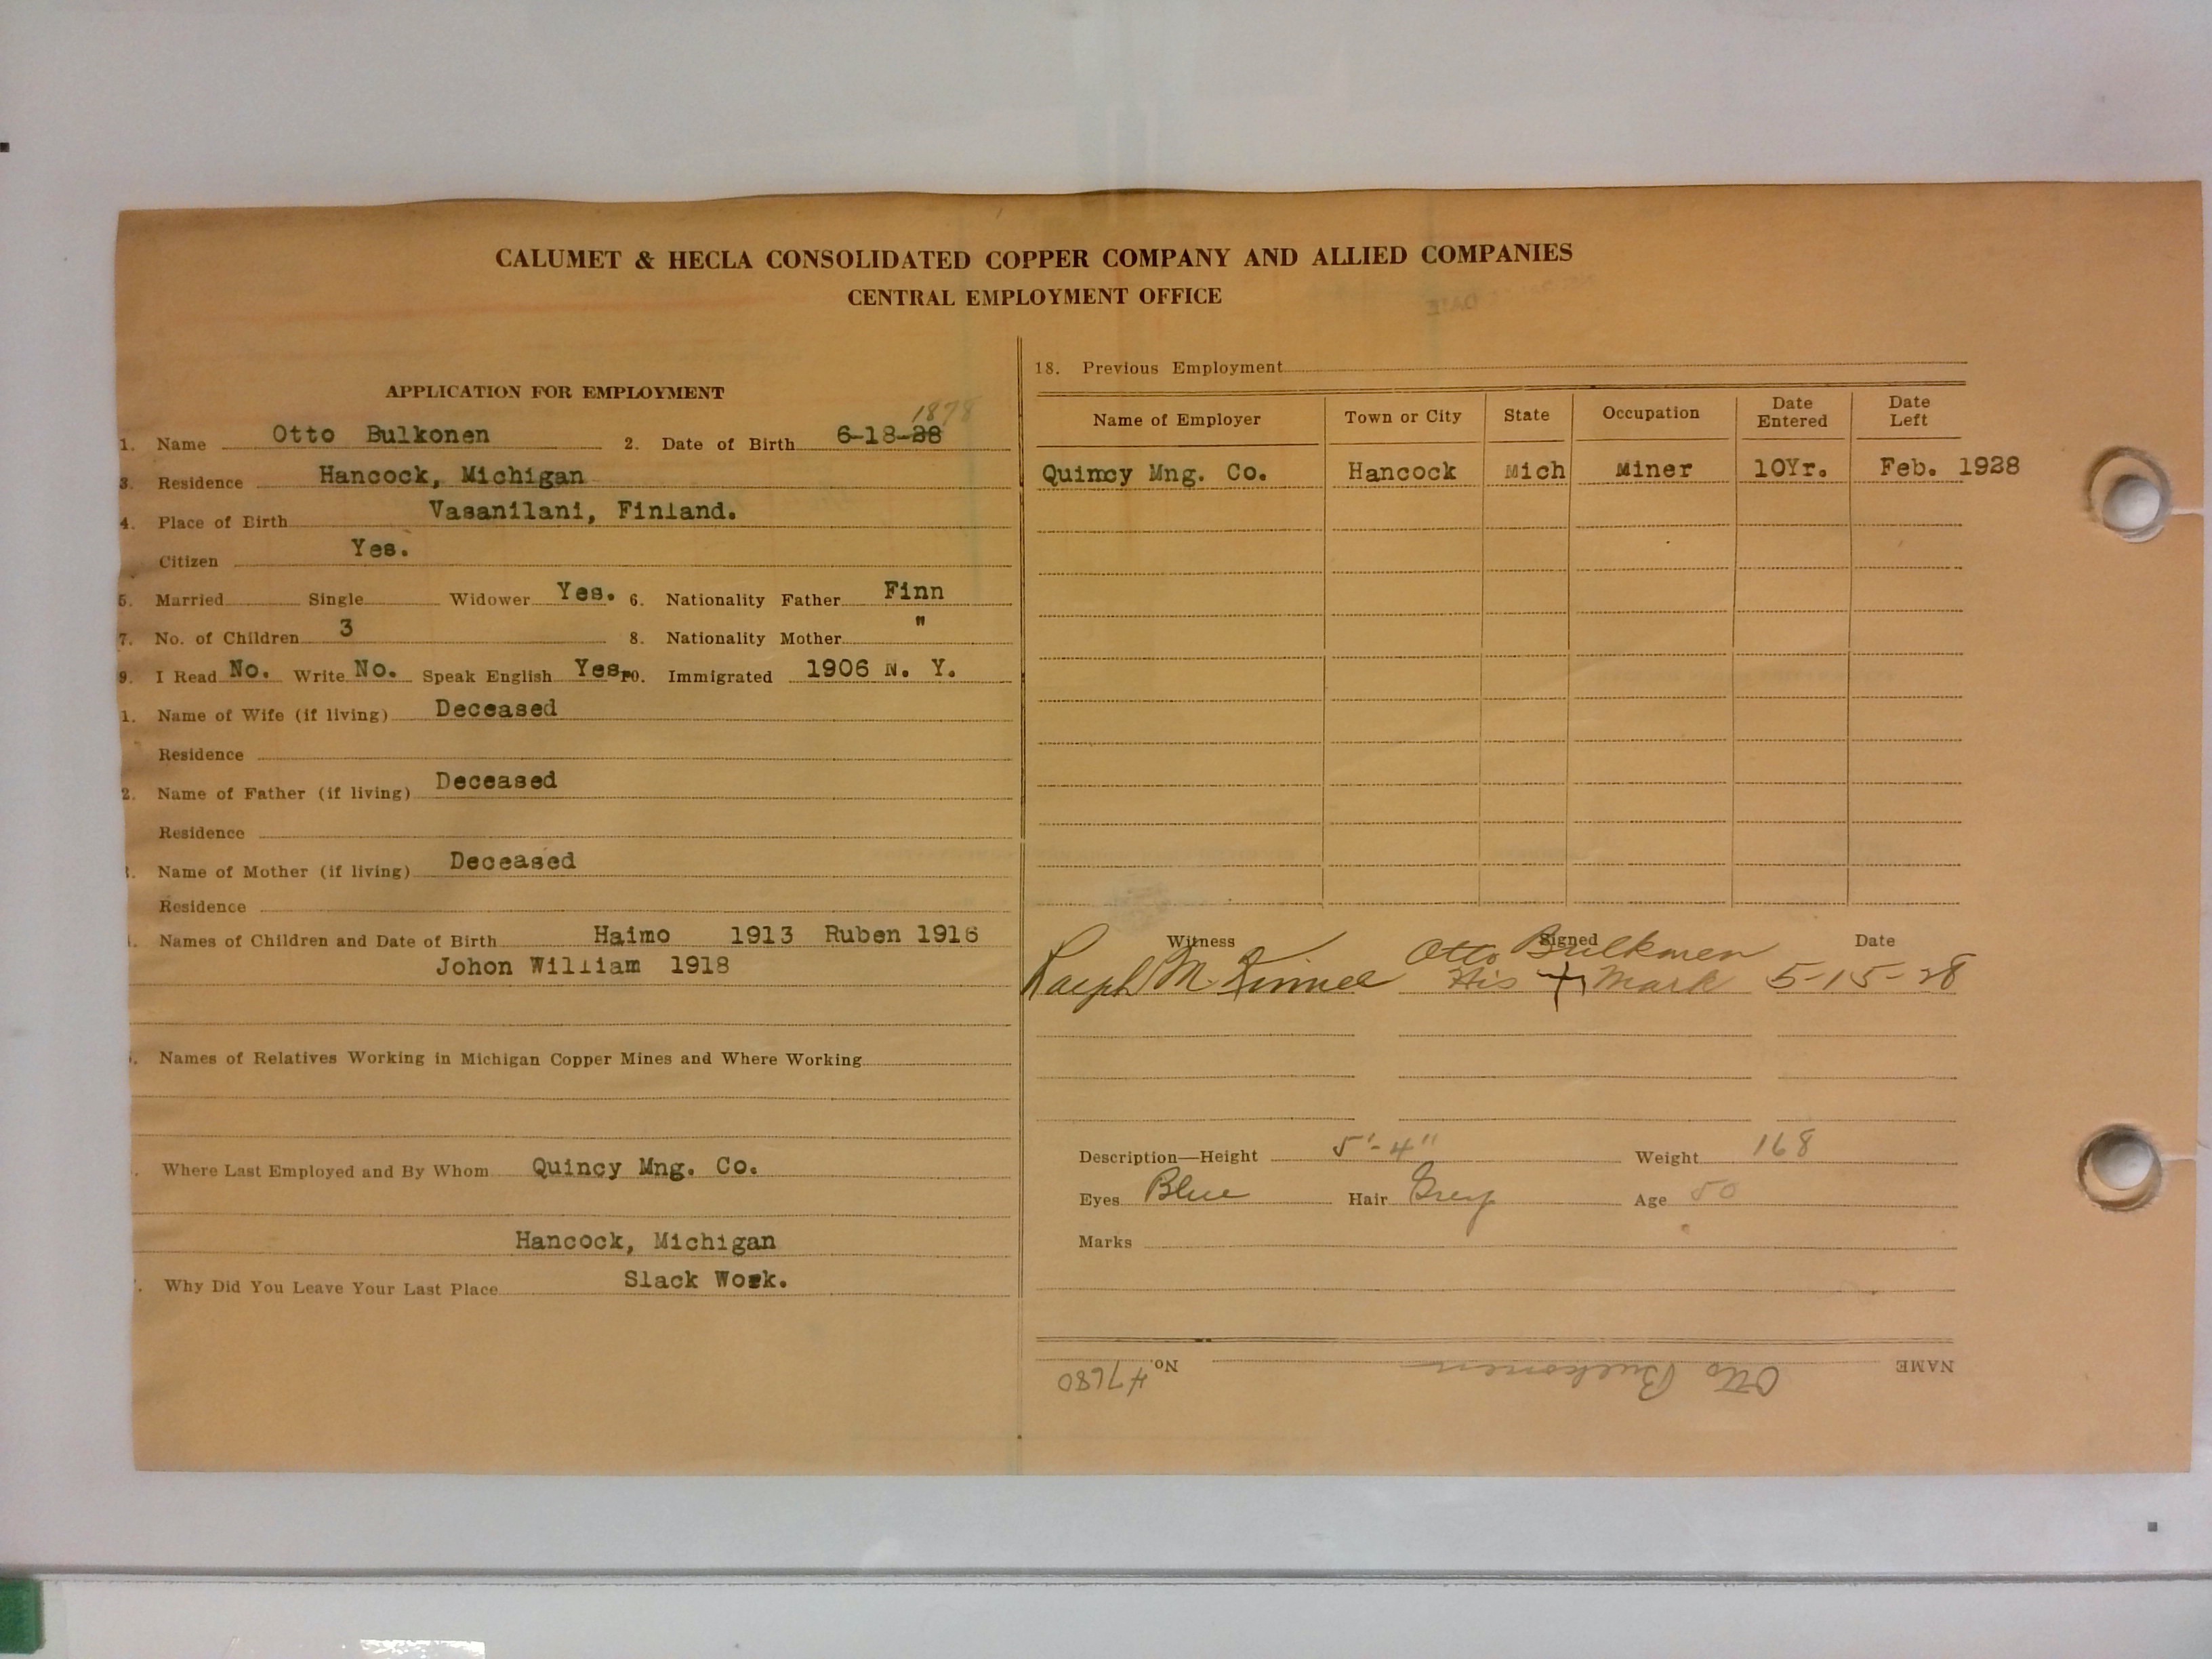 CALUMET & HECLA CONSOLIDATED COPPER COMPANY AND ALLIED COMPANIES
CENTRAL EMPLOYMENT OFFICE
APPLICATION FOR EMPLOYMENT
1878
1. Name Otto Bulkonen 2. Date of Birth 6-18-28
3. Residence Hancock, Michigan
4. Place of Birth Vasanilani, Finland.
Citizen Yes.
5. Married Single Widower Yes. 6. Nationality Father Finn
7. No. of Children 3 8. Nationality Mother "
9. I Read No. Write No. Speak English Yes 10. Immigrated 1906 N. Y.
1. Name of Wife (if living) Deceased
Residence
2. Name of Father (if living) Deceased
Residence
Name of Mother (if living) Deceased
Residence
Names of Children and Date of Birth Haimo 1913 Ruben 1916
Johon William 1918
Names of Relatives Working in Michigan Copper Mines and Where Working
Where Last Employed and By Whom Quincy Mng. Co.
Hancock, Michigan
Why Did You Leave Your Last Place Slack Work.
18. Previous Employment
Name of Employer Town or City State Occupation Date Entered Date Left
Quincy Mng. Co. Hancock Mich Miner 10Yr. Feb. 1928
Witness Signed Date
Otto Bulkonen
Ralph M His + Mark 5-15-28
Description—Height 5'-4" Weight 168
Eyes Blue Hair Grey Age 50
Marks
NAME Otto Bulkonen No. 47680
DATE